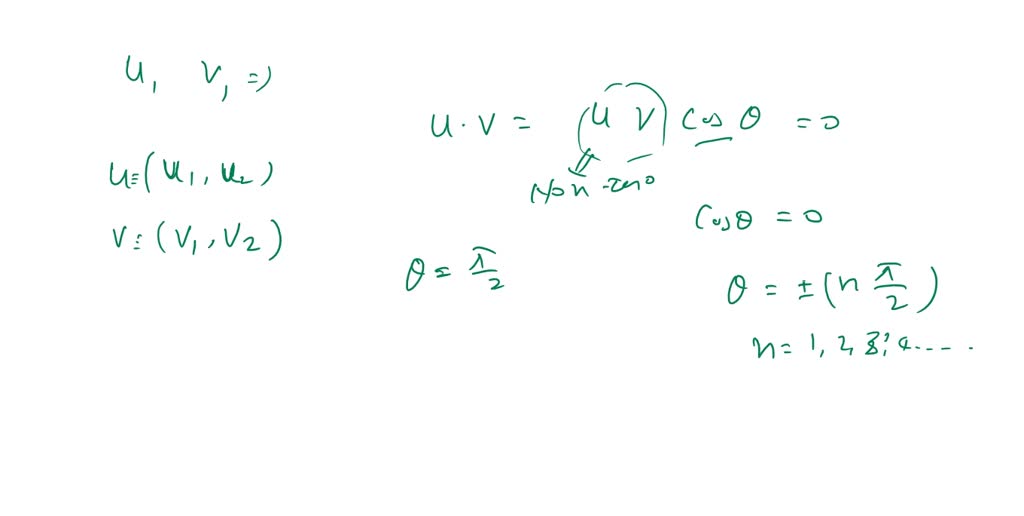 u, v, ⇒
u·v = (u v) cos θ = 0
Non-zero
u ≡ (u₁, u₂)
v ≡ (v₁, v₂)
cos θ = 0
θ = π/2
θ = ±(n π/2)
n = 1, 2, 3, 4.....